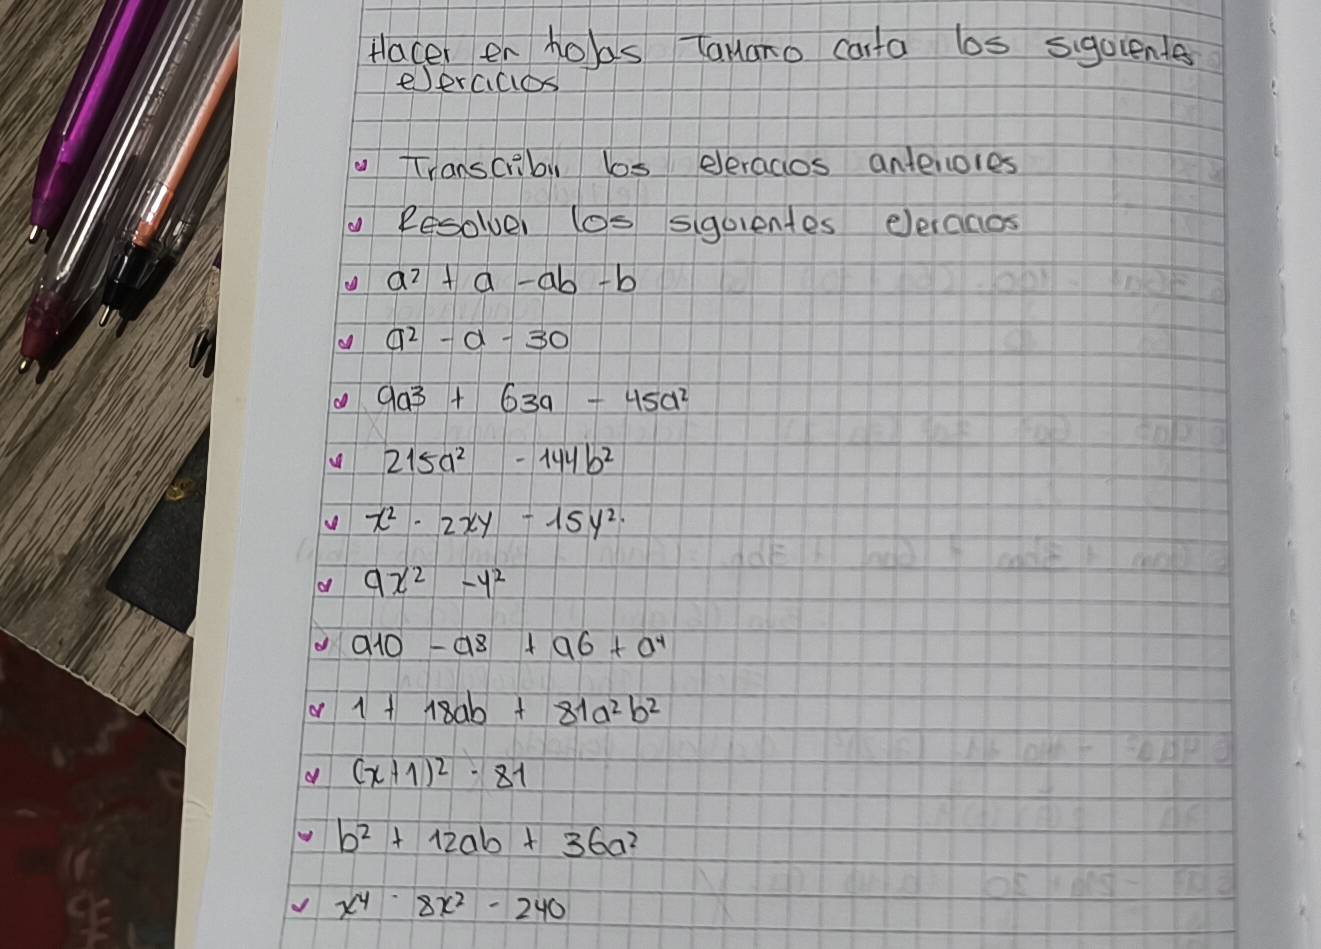 Hacer en hojas Tamano carta los siguientes
ejercicios
Transcribir los ejercicios anteriores
Resolver los siguientes ejercicios
a² + a - ab - b
a² - a - 30
9a³ + 63a - 45a²
215a² - 144b²
x² - 2xy - 15y².
9x² - y²
a10 - a8 + a6 + a⁴
1 + 18ab + 81a²b²
(x+1)² - 81
b² + 12ab + 36a²
x⁴ - 8x² - 240